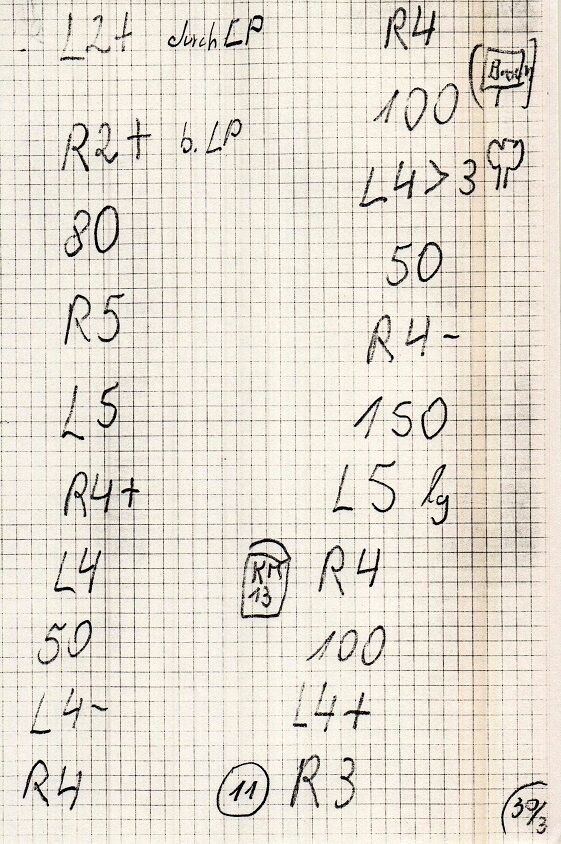 L2+ durch LP
R2+ b. LP
80
R5
L5
R4+
L4
50
L4-
R4
R4
100
L4>3
50
R4-
150
L5 lg
KM
13
R4
100
L4+
11
R3
30/3